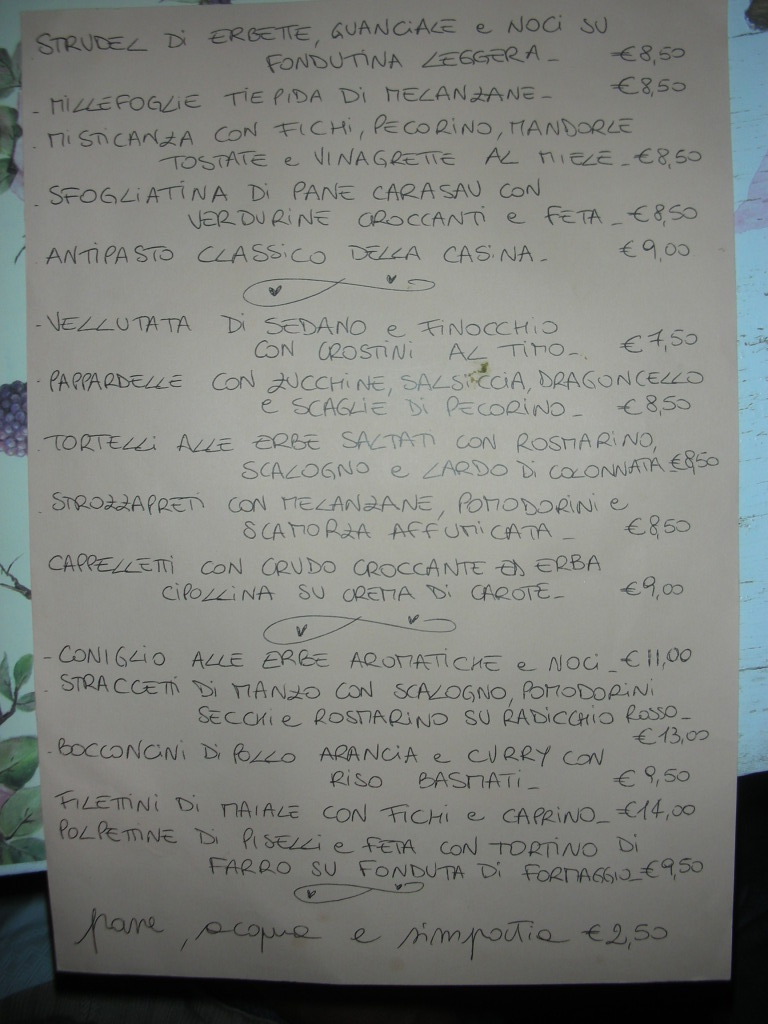 STRUDEL DI ERBETTE, GUANCIALE e NOCI SU
FONDUTINA LEGGERA - €8,50
- MILLEFOGLIE TIEPIDA DI MELANZANE - €8,50
- MISTICANZA CON FICHI, PECORINO, MANDORLE
TOSTATE e VINAGRETTE AL MIELE - €8,50
- SFOGLIATINA DI PANE CARASAU CON
VERDURINE CROCCANTI e FETA - €8,50
- ANTIPASTO CLASSICO DELLA CASINA - €9,00
- VELLUTATA DI SEDANO e FINOCCHIO
CON CROSTINI AL TIMO - €7,50
- PAPPARDELLE CON ZUCCHINE, SALSICCIA, DRAGONCELLO
e SCAGLIE DI PECORINO - €8,50
- TORTELLI ALLE ERBE SALTATI CON ROSMARINO,
SCALOGNO e LARDO DI COLONNATA €8,50
- STROZZAPRETI CON MELANZANE, POMODORINI e
SCAMORZA AFFUMICATA - €8,50
- CAPPELLETTI CON CRUDO CROCCANTE ED ERBA
CIPOLLINA SU CREMA DI CAROTE - €9,00
- CONIGLIO ALLE ERBE AROMATICHE e NOCI - €11,00
- STRACCETTI DI MANZO CON SCALOGNO, POMODORINI
SECCHI e ROSMARINO SU RADICCHIO ROSSO -
€13,00
- BOCCONCINI DI POLLO ARANCIA e CURRY CON
RISO BASMATI - € 9,50
- FILETTINI DI MAIALE CON FICHI e CAPRINO - €14,00
POLPETTINE DI PISELLI e FETA CON TORTINO DI
FARRO SU FONDUTA DI FORMAGGIO - €9,50
pane, acqua e simpatia €2,50